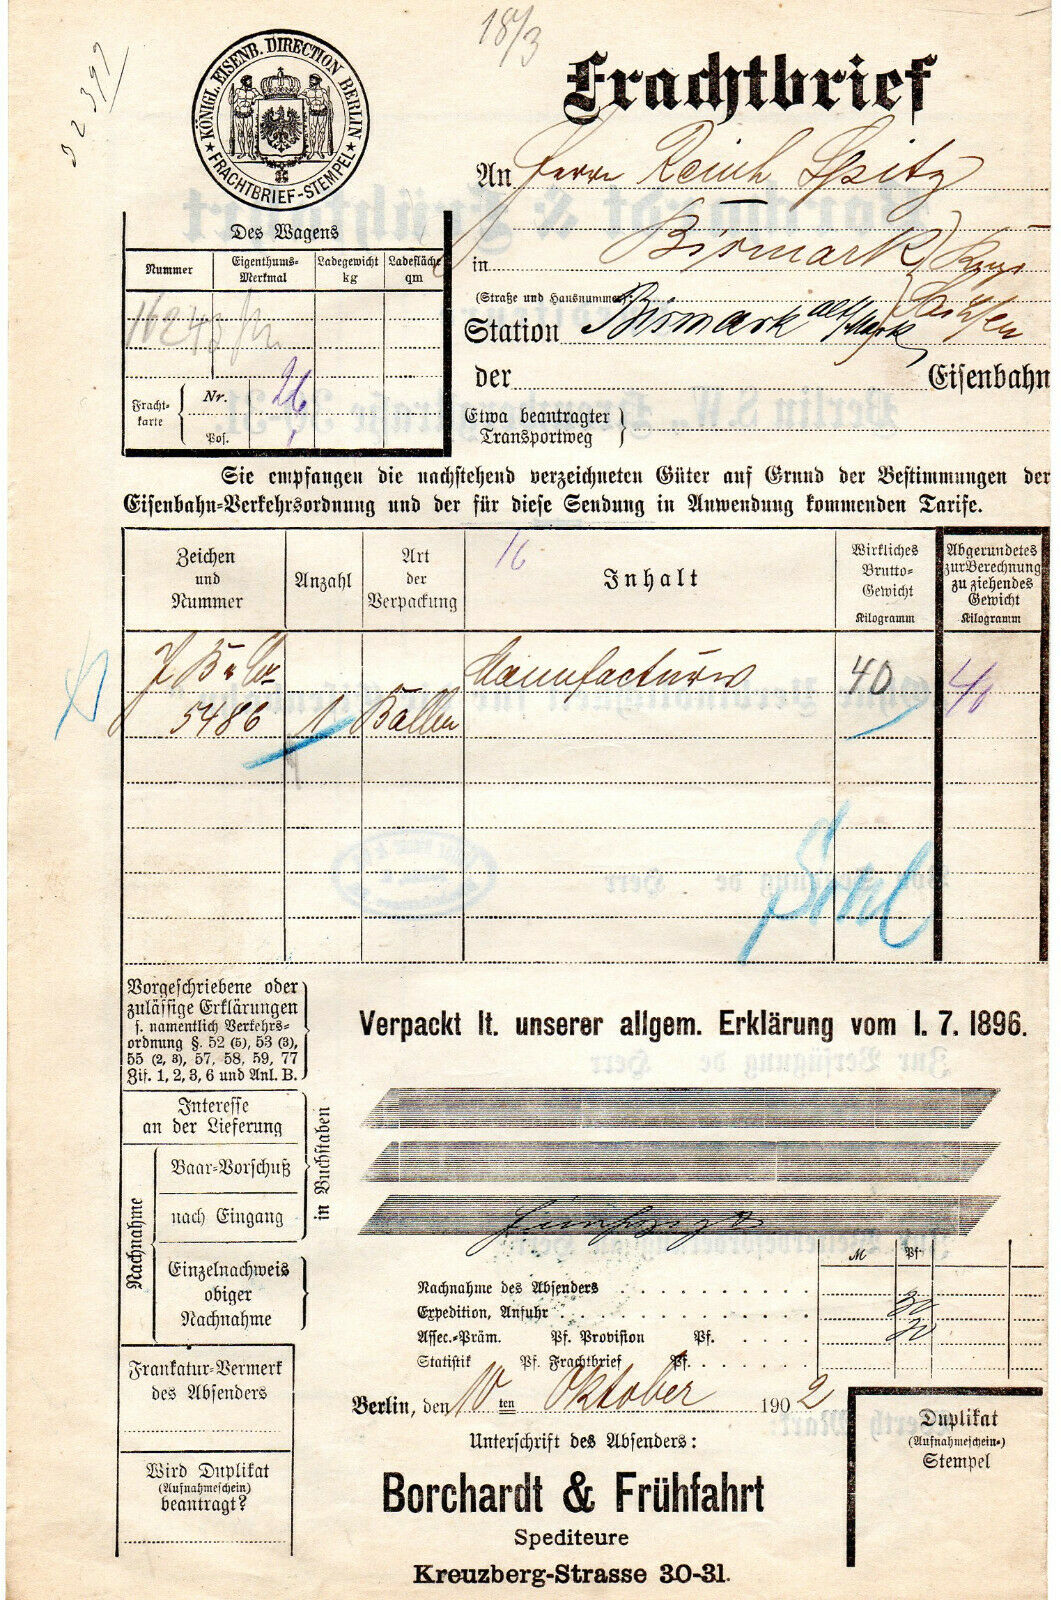 18/3
KÖNIGL. EISENB. DIRECTION BERLIN
★ FRACHTBRIEF-STEMPEL ★
Frachtbrief
An Herrn Reinh Spitz
in Bismark
(Straße und Hausnummer)
Station Bismark Altmark
Sachsen
der Eisenbahn
Etwa beantragter
Transportweg
Des Wagens
Nummer Eigenthums-Merkmal Ladegewicht kg Ladefläche qm
16243
Fracht-karte Nr. 26
Pos.
Sie empfangen die nachstehend verzeichneten Güter auf Grund der Bestimmungen der
Eisenbahn-Verkehrsordnung und der für diese Sendung in Anwendung kommenden Tarife.
16
Zeichen und Nummer Anzahl Art der Verpackung Inhalt Wirkliches Brutto-Gewicht Kilogramm Abgerundetes zur Berechnung zu ziehendes Gewicht Kilogramm
Manufacturw 40 40
5486 1 Ballen
Vorgeschriebene oder
zulässige Erklärungen
s. namentlich Verkehrs-
ordnung §. 52 (5), 53 (3),
55 (2, 3), 57, 58, 59, 77
Zif. 1, 2, 3, 6 und Anl. B.
Verpackt lt. unserer allgem. Erklärung vom 1. 7. 1896.
Interesse
an der Lieferung
in Buchstaben
Nachnahme
Baar-Vorschuß
nach Eingang
Einzelnachweis
obiger
Nachnahme
M Pf
Nachnahme des Absenders
Expedition, Anfuhr
Assec.-Präm. Pf. Provision Pf.
Statistik Pf. Frachtbrief Pf.
Frankatur-Vermerk
des Absenders
Berlin, den 10 ten Oktober 1902
Wird Duplikat
(Aufnahmeschein)
beantragt?
Unterschrift des Absenders:
Borchardt & Frühfahrt
Spediteure
Kreuzberg-Strasse 30-31.
Duplikat
(Aufnahmeschein-)
Stempel